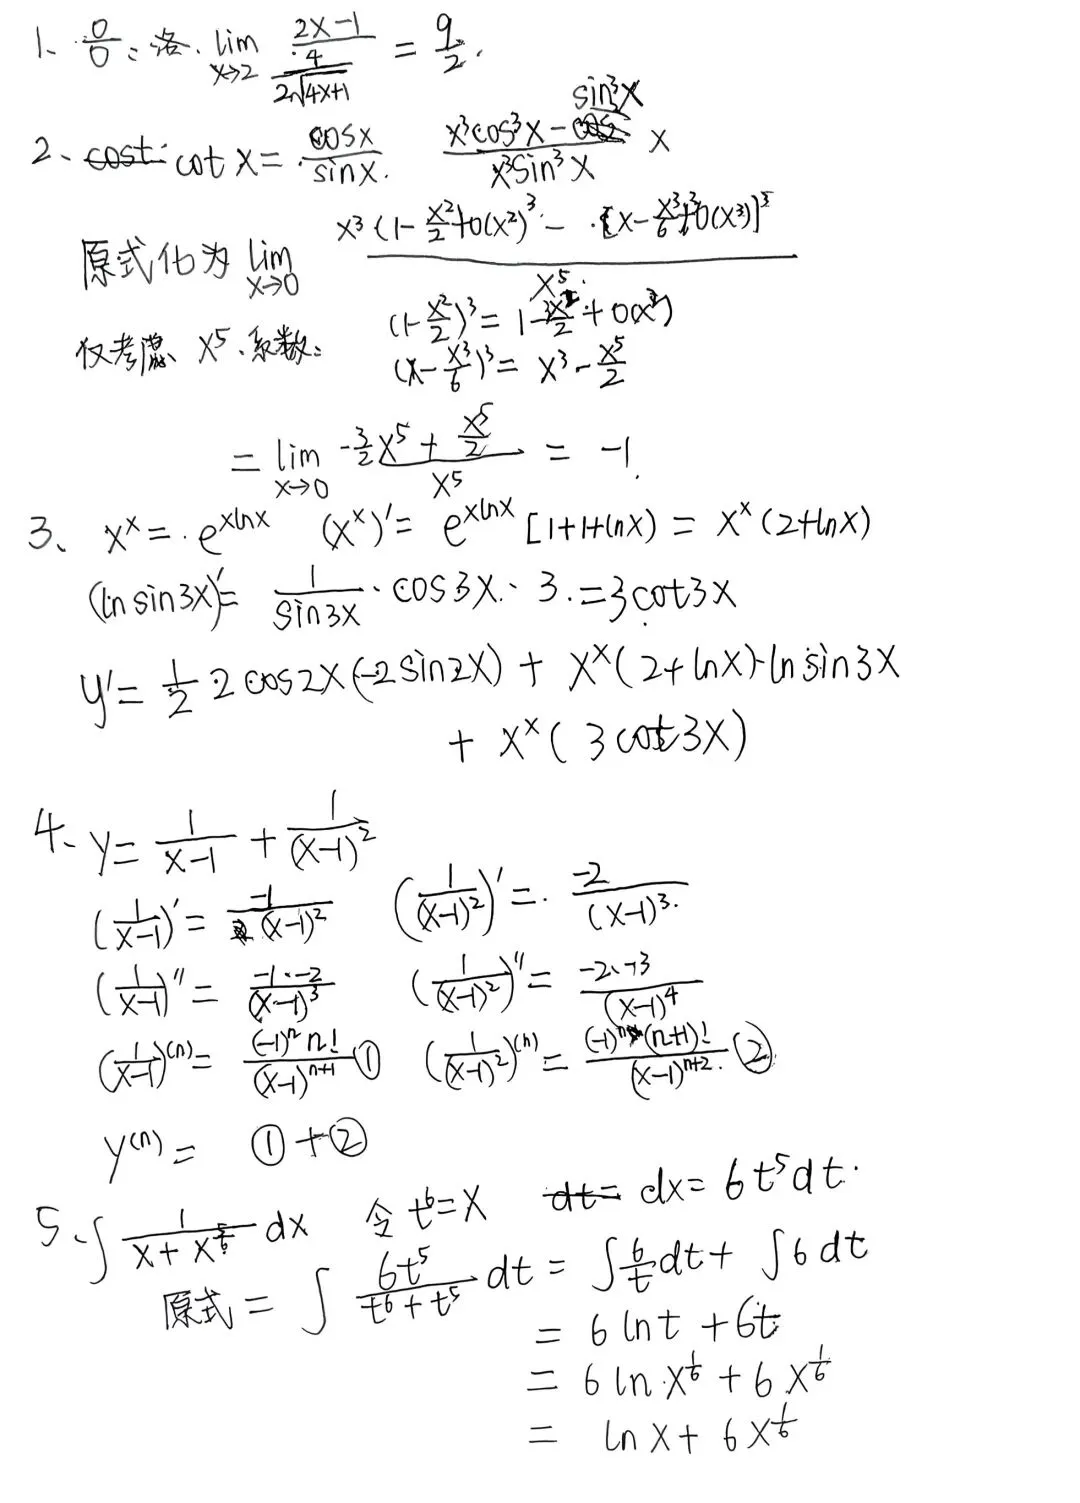 1、0/0：洛. lim x→2 (2x-1)/(4/(2√(4x+1))) = 9/2.
2、cot x = cosx/sinx. (x³cos³x - sin³x)/(x³sin³x) x
原式化为 lim x→0 (x³(1-x²/2+o(x²))³ - [x-x³/6+o(x³)]³)/x⁵
(1-x²/2)³ = 1-3x²/2+o(x²)
仅考虑 x⁵系数： (x-x³/6)³ = x³-x⁵/2
= lim x→0 (-3/2 x⁵ + x⁵/2)/x⁵ = -1.
3、 xˣ = e^(xlnx) (xˣ)' = e^(xlnx) [1+1+lnx) = xˣ(2+lnx)
(ln sin3x)' = 1/sin3x · cos3x · 3 = 3cot3x
y' = 1/2 · 2cos2x(-2sin2x) + xˣ(2+lnx)·ln sin3x
+ xˣ(3cot3x)
4、y = 1/(x-1) + 1/(x-1)²
(1/(x-1))' = -1/(x-1)² (1/(x-1)²)' = -2/(x-1)³
(1/(x-1))'' = -1·-2/(x-1)³ (1/(x-1)²)'' = -2·-3/(x-1)⁴
(1/(x-1))⁽ⁿ⁾ = (-1)ⁿn!/(x-1)ⁿ⁺¹ ① (1/(x-1)²)⁽ⁿ⁾ = (-1)ⁿ(n+1)!/(x-1)ⁿ⁺² ②
y⁽ⁿ⁾ = ①+②
5、∫ 1/(x+x^(5/6)) dx 令 t⁶=x dx = 6t⁵dt.
原式 = ∫ 6t⁵/(t⁶+t⁵) dt = ∫ 6/t dt + ∫6dt
= 6lnt + 6t
= 6lnx^(1/6) + 6x^(1/6)
= lnx + 6x^(1/6)